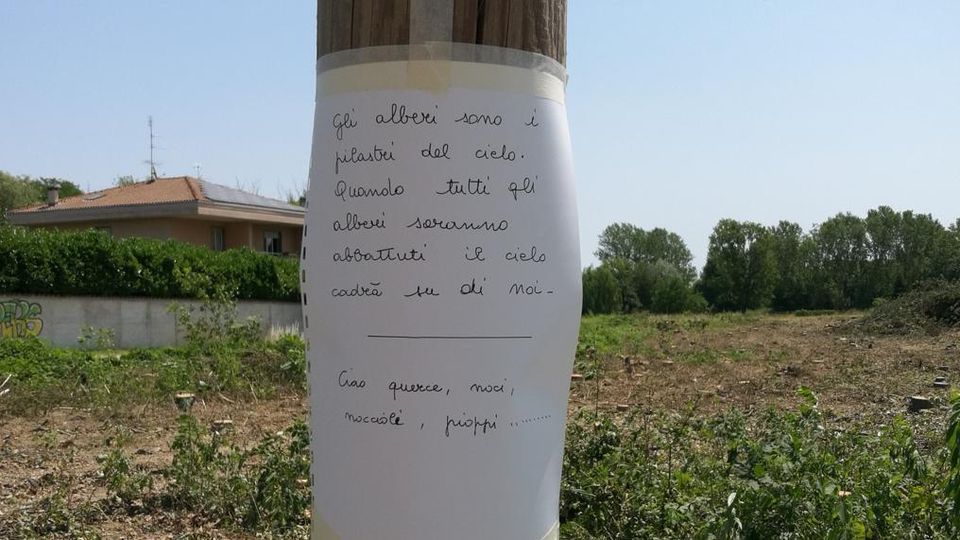 Gli alberi sono i
pilastri del cielo.
Quando tutti gli
alberi saranno
abbattuti il cielo
cadrà su di noi-
Ciao querce, noci,
noccioli, pioppi ........